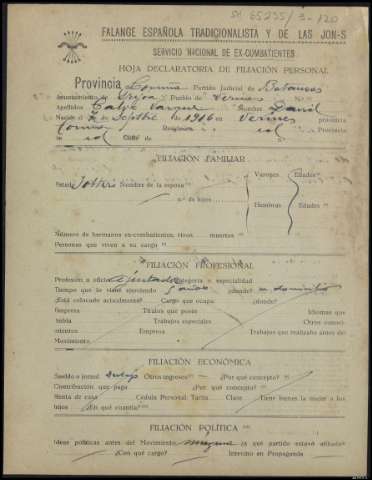 FALANGE ESPAÑOLA TRADICIONALISTA Y DE LAS JON-S
SERVICIO NACIONAL DE EX-COMBATIENTES
HOJA DECLARATORIA DE FILIACIÓN PERSONAL
Provincia Coruña Partido Judicial de Betanzos
Ayuntamiento de Irijoa Pueblo de Verines
Apellidos Nombre David
Nacido el de Septbre de 1916 en Verines provincia
Coruña Residencia id Provincia
id Calle de
FILIACIÓN FAMILIAR
Estado Soltero Nombre de la esposa
Varones Edades
n.º de hijos
Hembras Edades
Número de hermanos ex-combatientes, vivos muertos
Personas que viven a su cargo
FILIACIÓN PROFESIONAL
Profesión u oficio Categoría o especialidad
Tiempo que lo viene ejerciendo años ¿dónde? a domicilio
¿Está colocado actualmente? Cargo que ocupa ¿dónde?
Empresa Títulos que posee Idiomas que
habla Trabajos especiales Otros conoci-
mientos Empresa Trabajos que realizaba antes del
Movimiento
FILIACIÓN ECONÓMICA
Sueldo o jornal Otros ingresos ¿Por qué concepto?
Contribución que paga ¿Por qué concepto?
Renta de casa Cédula Personal Tarifa Clase Tiene bienes la mujer o los
hijos ¿En qué cuantía?
FILIACIÓN POLÍTICA
Ideas políticas antes del Movimiento ninguna ¿a qué partido estuvo afiliado?
¿Con qué cargo? Intervino en Propaganda